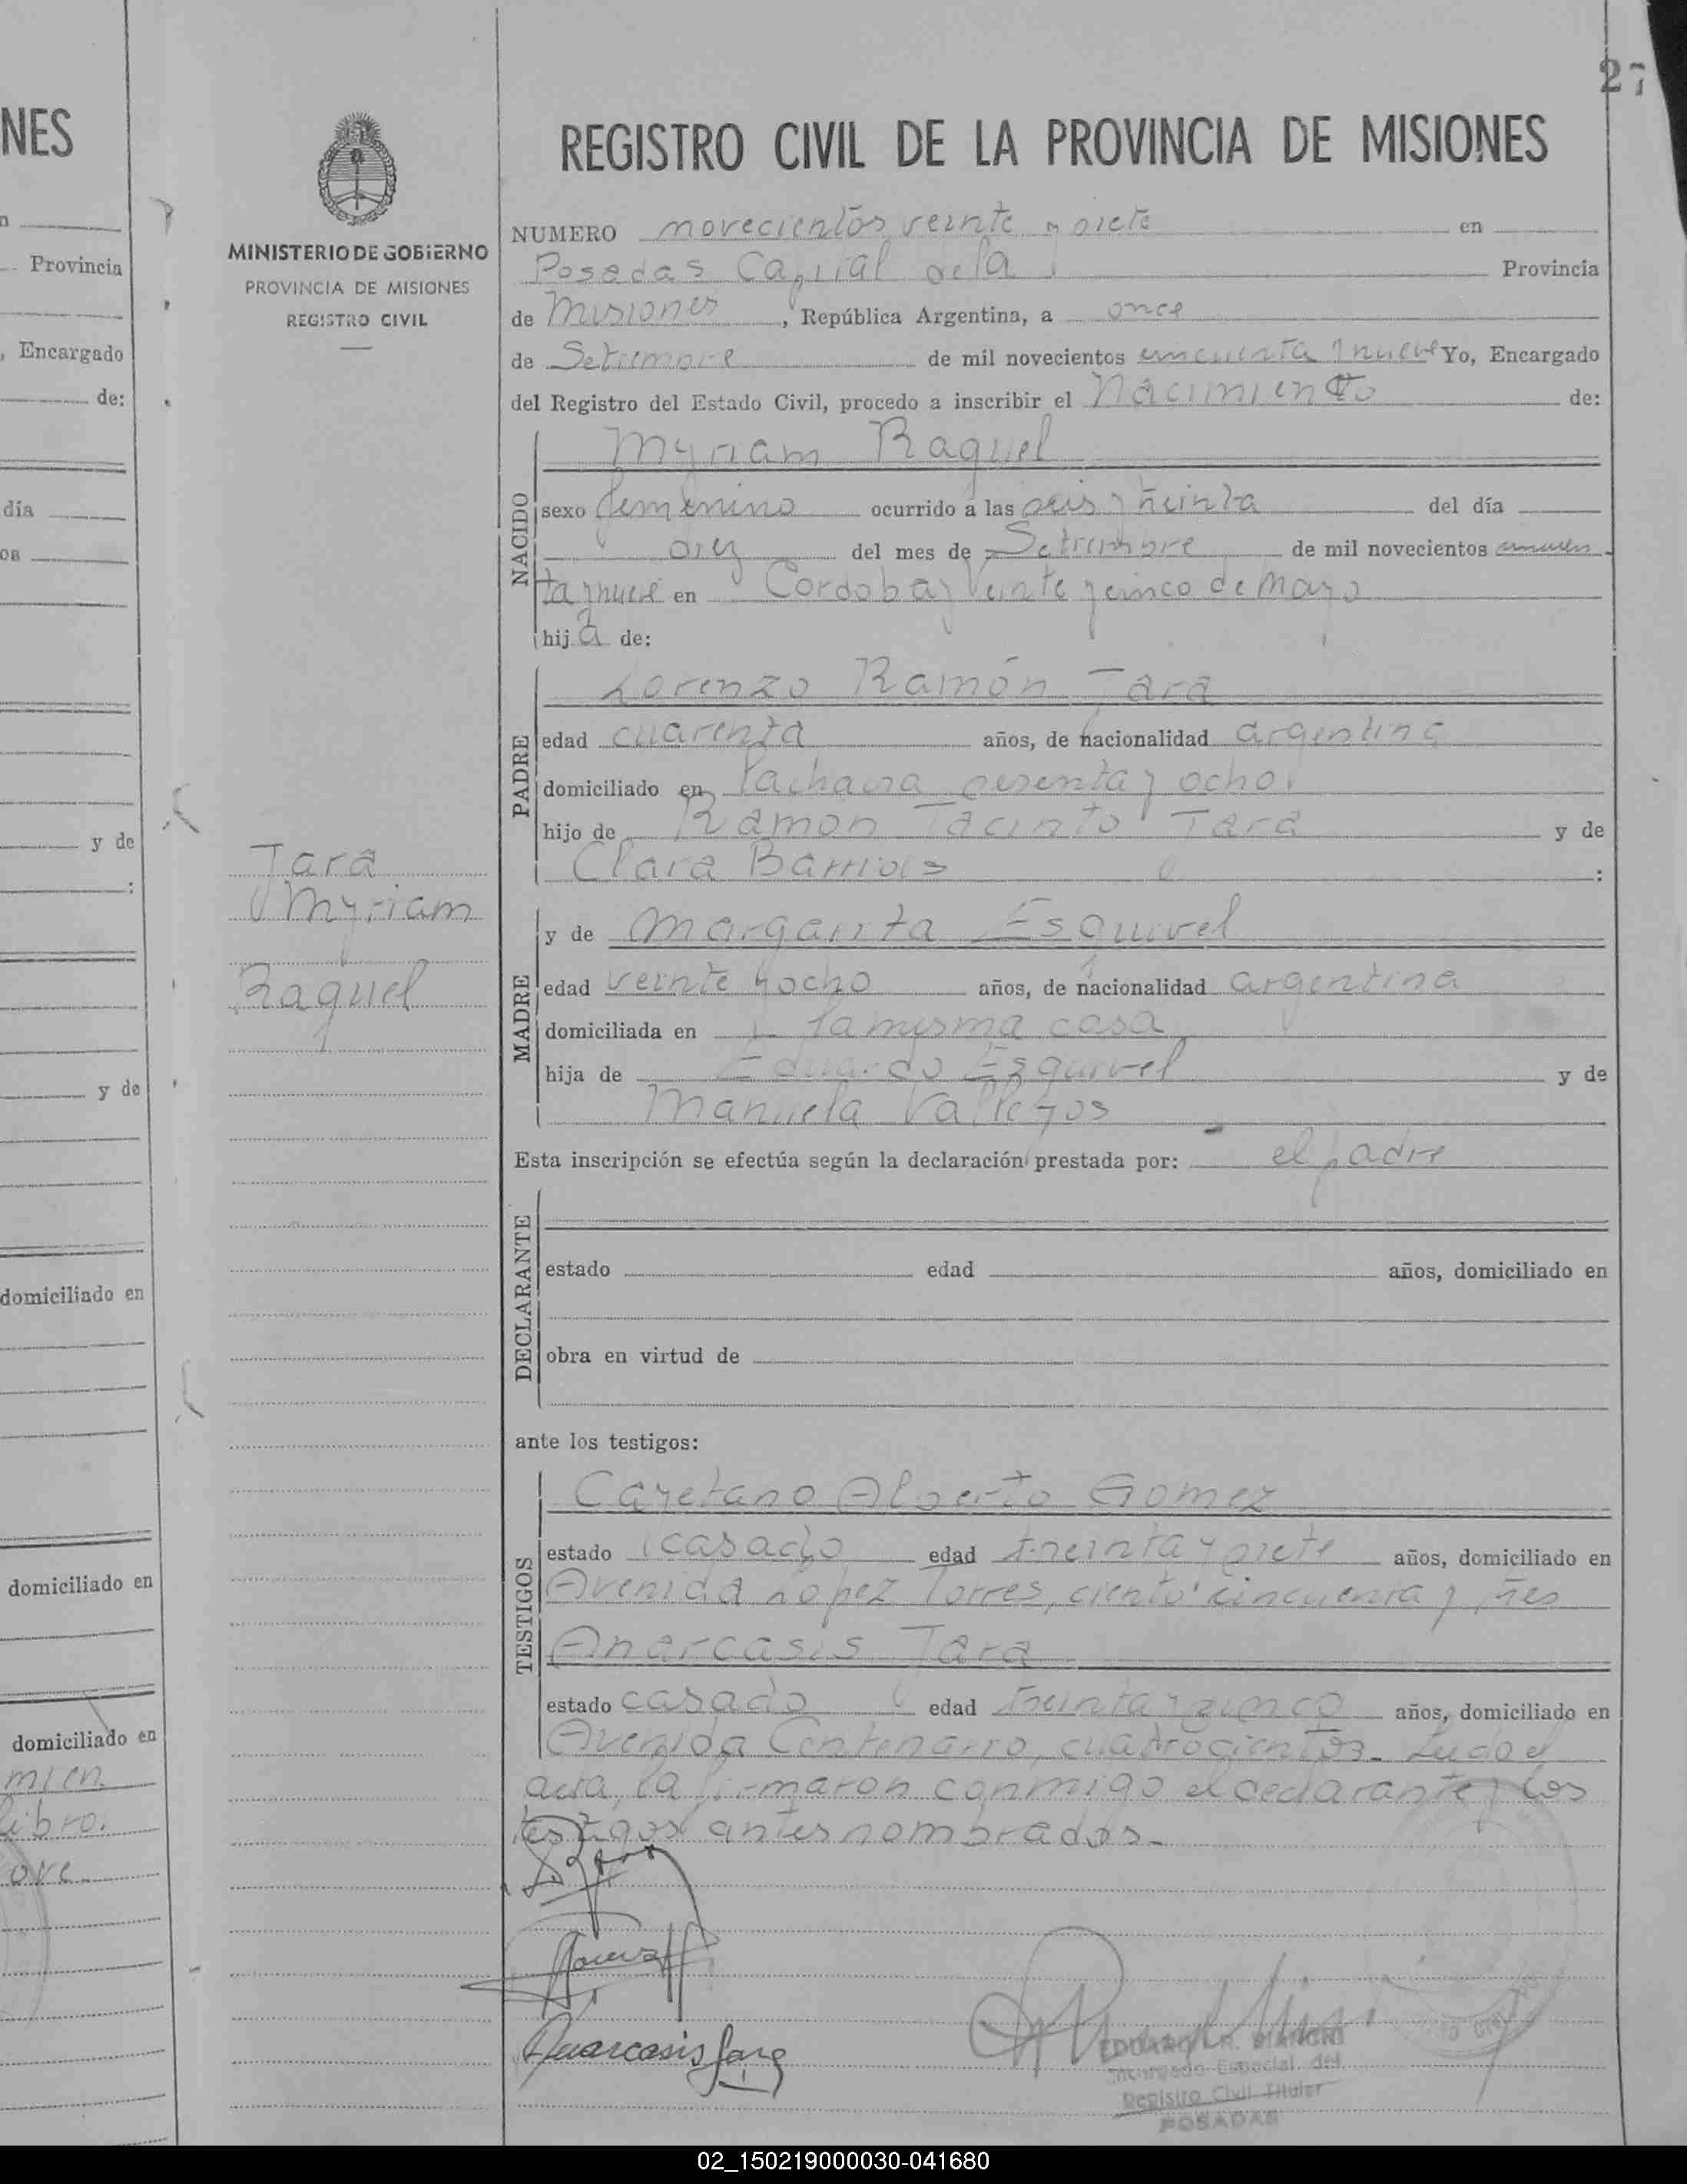 27
NES
REGISTRO CIVIL DE LA PROVINCIA DE MISIONES
MINISTERIO DE GOBIERNO
PROVINCIA DE MISIONES
REGISTRO CIVIL
NUMERO novecientos veinte y siete en
Posadas Capital de la Provincia
de Misiones, República Argentina, a once
de Setiembre de mil novecientos cincuenta y nueve Yo, Encargado
del Registro del Estado Civil, procedo a inscribir el Nacimiento de:
NACIDO
Myriam Raquel
sexo femenino ocurrido a las seis y treinta del día
diez del mes de Setiembre de mil novecientos cincuen
ta y nueve en Cordoba y Veinte y cinco de Mayo
hija de:
PADRE
Lorenzo Ramón Jara
edad cuarenta años, de nacionalidad argentina
domiciliado en sesenta y ocho
hijo de Ramon Jacinto Jara y de
Clara Barrios :
Jara
Myriam
Raquel
MADRE
y de Margarita Esquivel
edad veinte y ocho años, de nacionalidad argentina
domiciliada en la misma casa
hija de Eduardo Esquivel y de
Manuela Vallejos
Esta inscripción se efectúa según la declaración prestada por: el padre
DECLARANTE
estado edad años, domiciliado en
obra en virtud de
ante los testigos:
TESTIGOS
Cayetano Alberto Gomez
estado casado edad treinta y siete años, domiciliado en
Avenida Lopez Torres, ciento cincuenta y tres
Anarcasis Jara
estado casado edad treinta y cinco años, domiciliado en
Avenida Centenario, cuatrocientos. Leida el
acta, la firmaron conmigo el declarante y los
testigos antes nombrados.
Anarcasis Jara
EDUARDO R. BIANCHI
Encargado Especial del
Registro Civil Titular
POSADAS
Provincia
, Encargado
de:
día
y de
:
y de
domiciliado en
domiciliado en
domiciliado en
mien
libro.
02_150219000030-041680